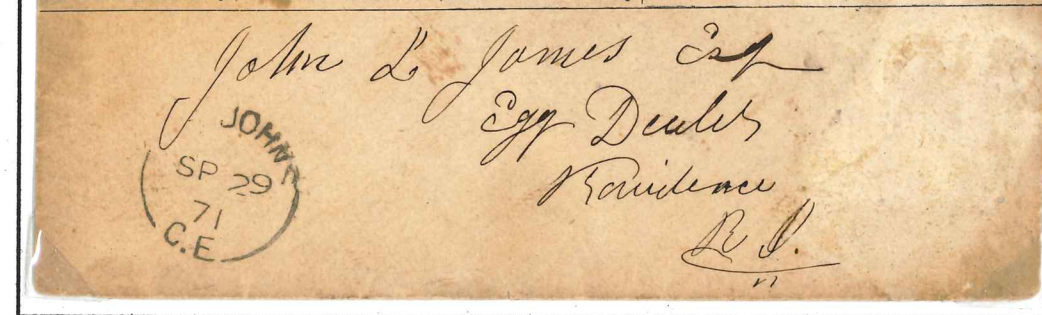 John L James Esq
Egg Dealer
Providence
R I.
JOHNS
SP 29
71
C.E